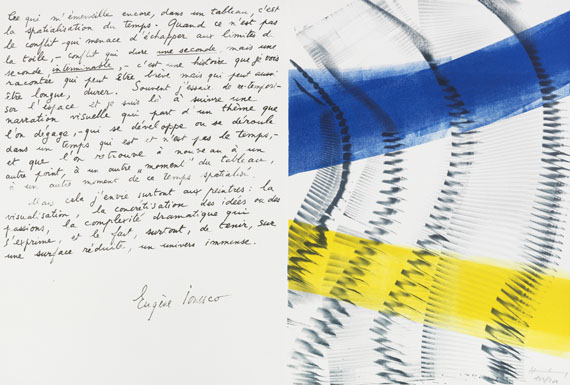 Ce qui m'émerveille encore, dans un tableau, c'est
la spatialisation du temps. Quand ce n'est pas
le conflit qui menace d'échapper aux limites de
la toile, - conflit qui dure une seconde mais une
seconde interminable, - c'est une histoire que je vois
racontée qui peut être brève mais qui peut aussi
être longue, durer. Souvent j'essaie de re-tempori-
ser l'espace et je suis là à suivre une
narration visuelle qui part d'un thème que
l'on dégage, - qui se développe ou se déroule
dans un temps qui est et n'est pas le temps, -
et que l'on retrouve à nouveau à un
autre point, à un autre "moment" du tableau,
à un autre moment de ce temps spatialisé.
Mais cela j'envie surtout aux peintres : la
visualisation, la concrétisation des idées ou des
passions, la complexité dramatique qui
s'exprime, et le fait, surtout, de tenir, sur
une surface réduite, un univers immense.
Eugène Ionesco